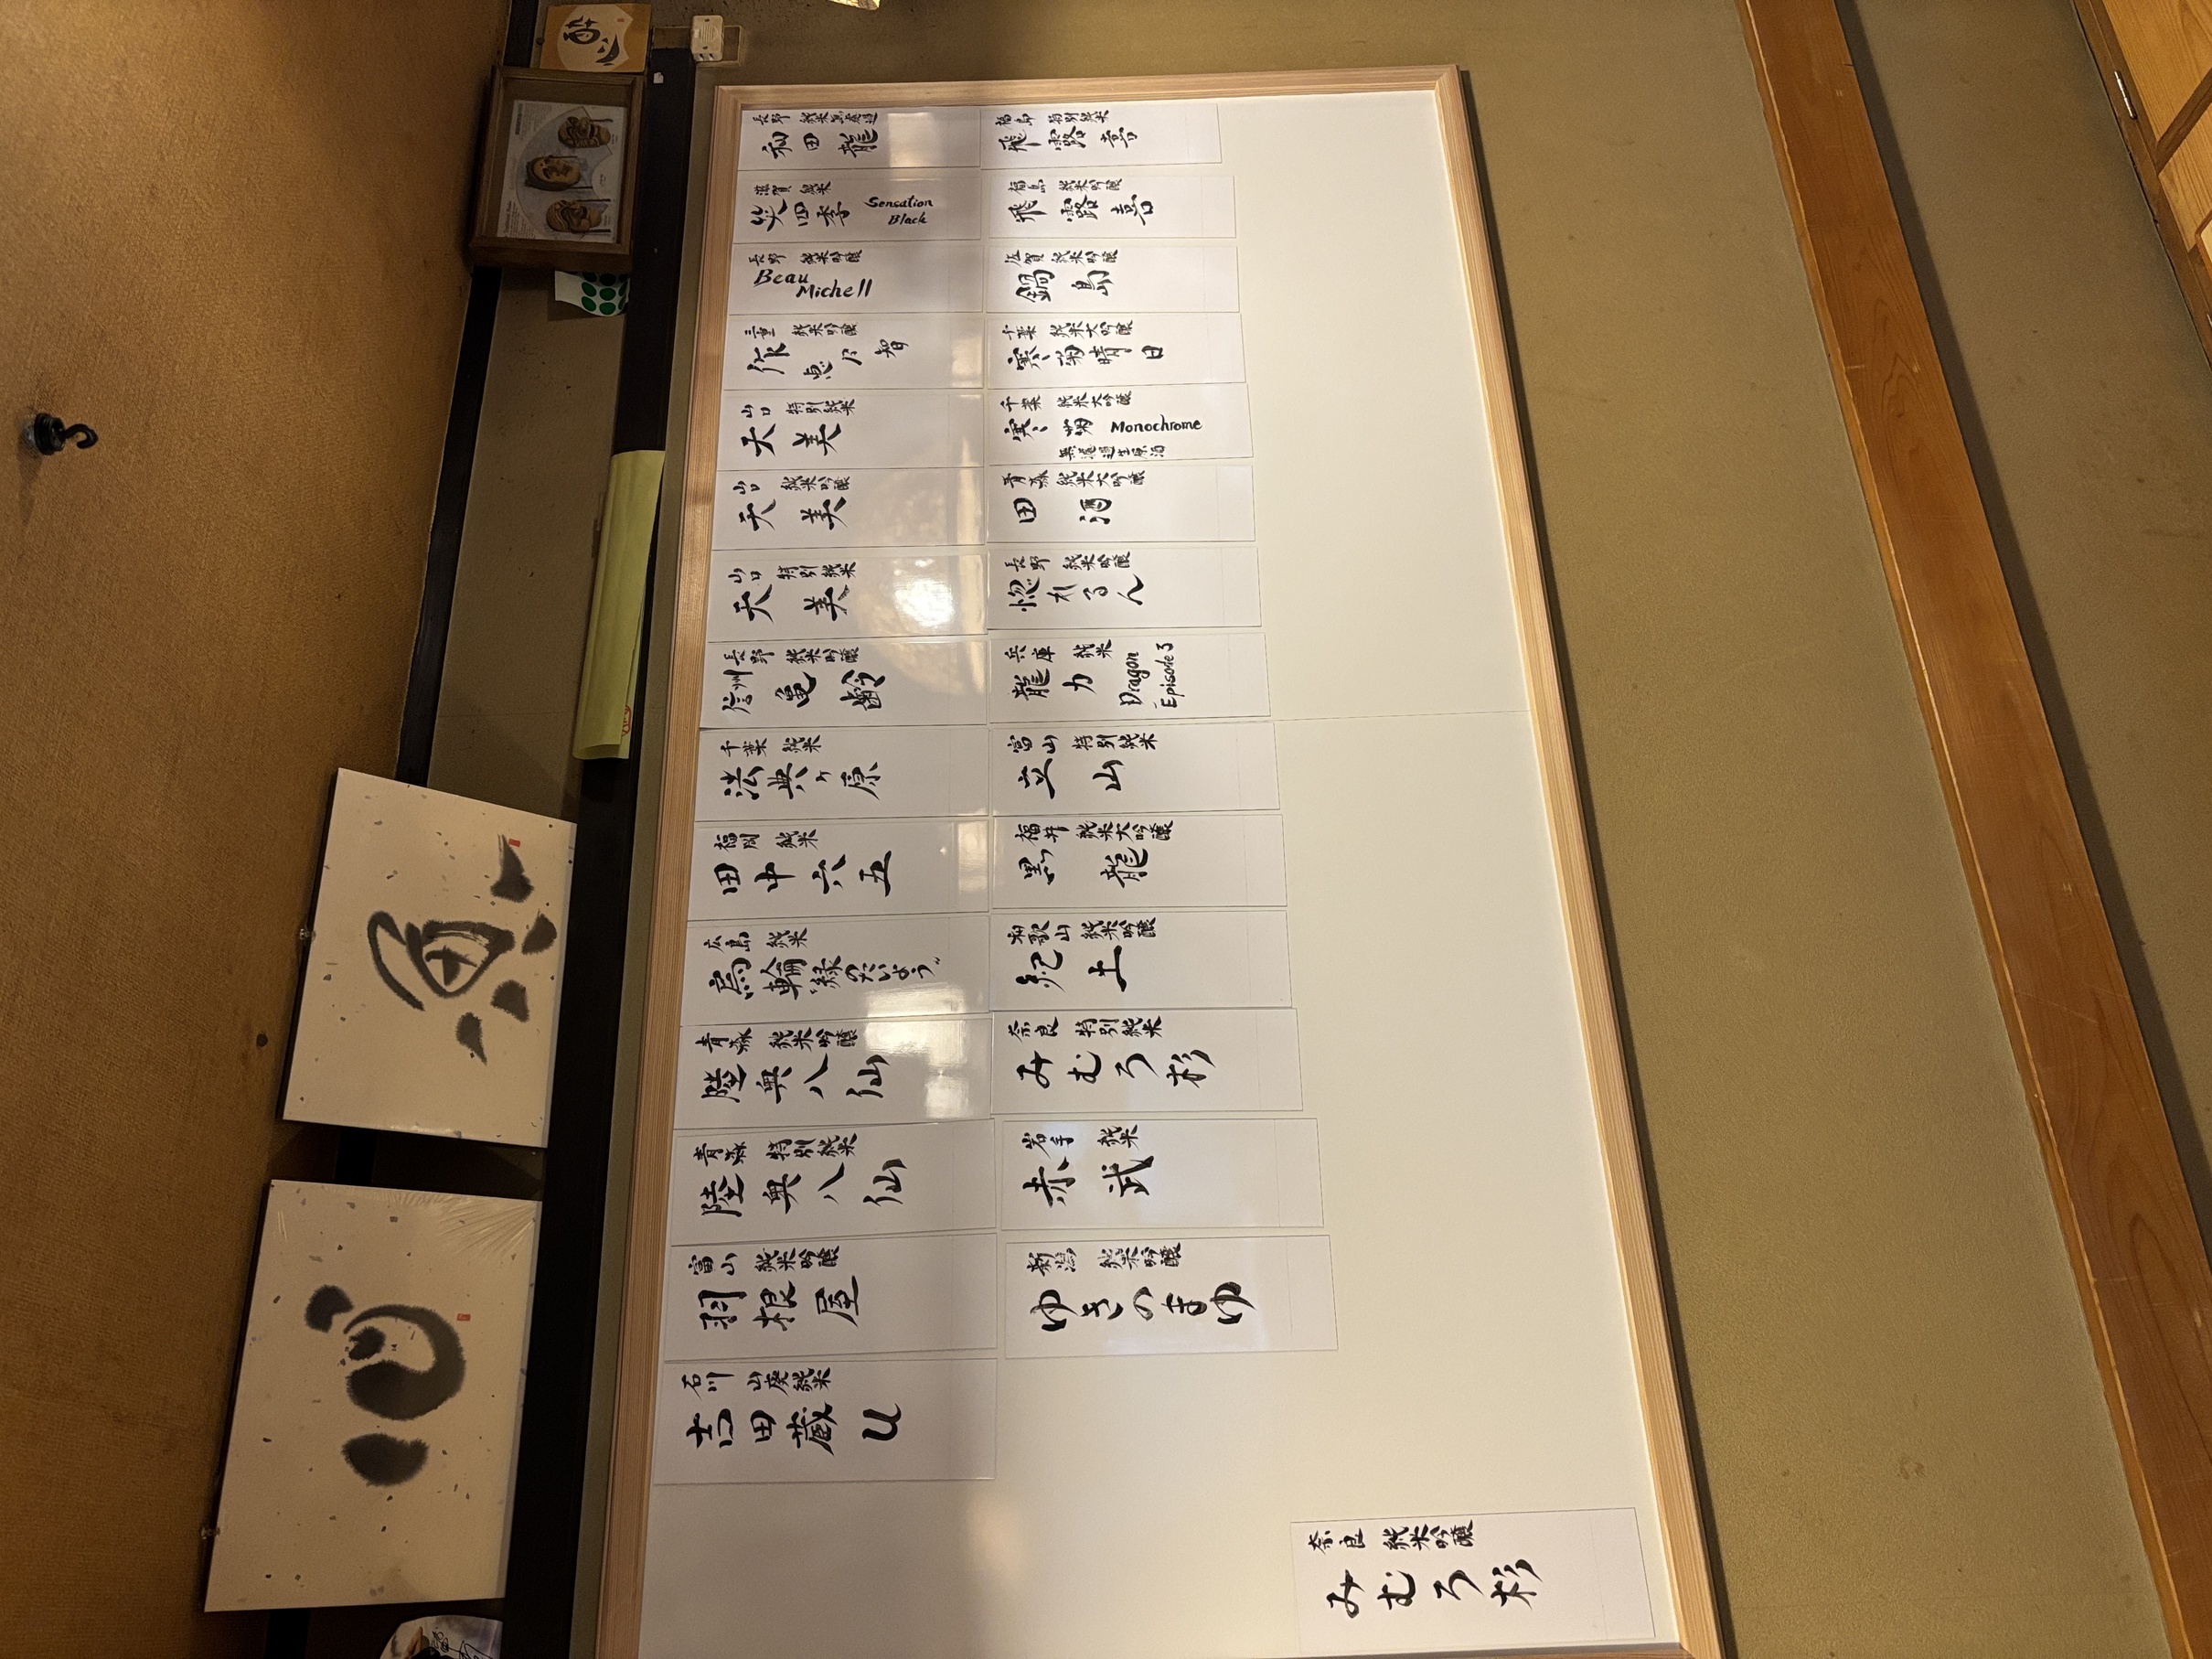 長野 純米無濾過
和田龍
滋賀 純米
笑四季 Sensation
Black
長野 純米吟醸
Beau
Michell
三重 純米吟醸
作 恵乃智
山口 特別純米
天美
山口 純米吟醸
天美
山口 特別純米
天美
長野 純米吟醸
信州亀齢
千葉 純米
法典ヶ原
福岡 純米
田中六五
広島 純米
寫輪“緑のたいよう”
青森 純米吟醸
陸奥八仙
青森 特別純米
陸奥八仙
富山 純米吟醸
羽根屋
石川 山廃純米
吉田蔵u
福島 特別純米
飛露喜
福島 純米吟醸
飛露喜
佐賀 純米吟醸
鍋島
千葉 純米大吟醸
寒菊晴日
千葉 純米大吟醸
寒菊 Monochrome
無濾過生原酒
青森 純米大吟醸
田酒
長野 純米吟醸
惚れるん
兵庫 純米
龍力 Dragon
Episode 3
富山 特別純米
立山
福井 純米大吟醸
黒龍
和歌山 純米吟醸
紀土
奈良 特別純米
みむろ杉
岩手 純米
赤武
新潟 純米吟醸
ゆきのまゆ
奈良 純米吟醸
みむろ杉